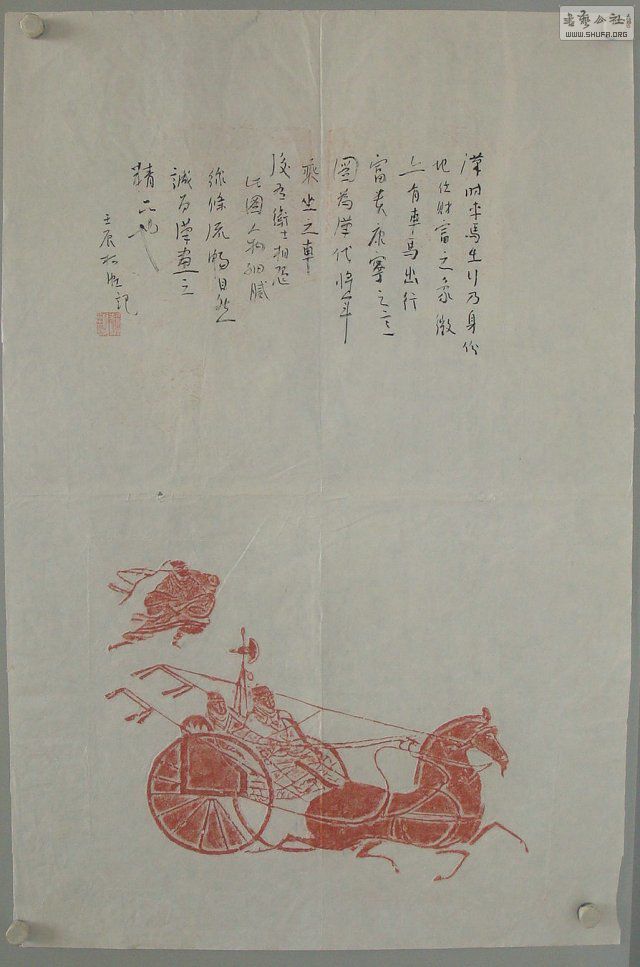 漢时车馬出行乃身份
地位财富之象徵
上有車馬出行
富贵康寧之意
圖為漢代將
乘坐之車
後有衛士相
此圖人物细腻
線條流暢自然
誠为漢畫之
精品也
壬辰松記
書藝公社
WWW.SHUFA.ORG